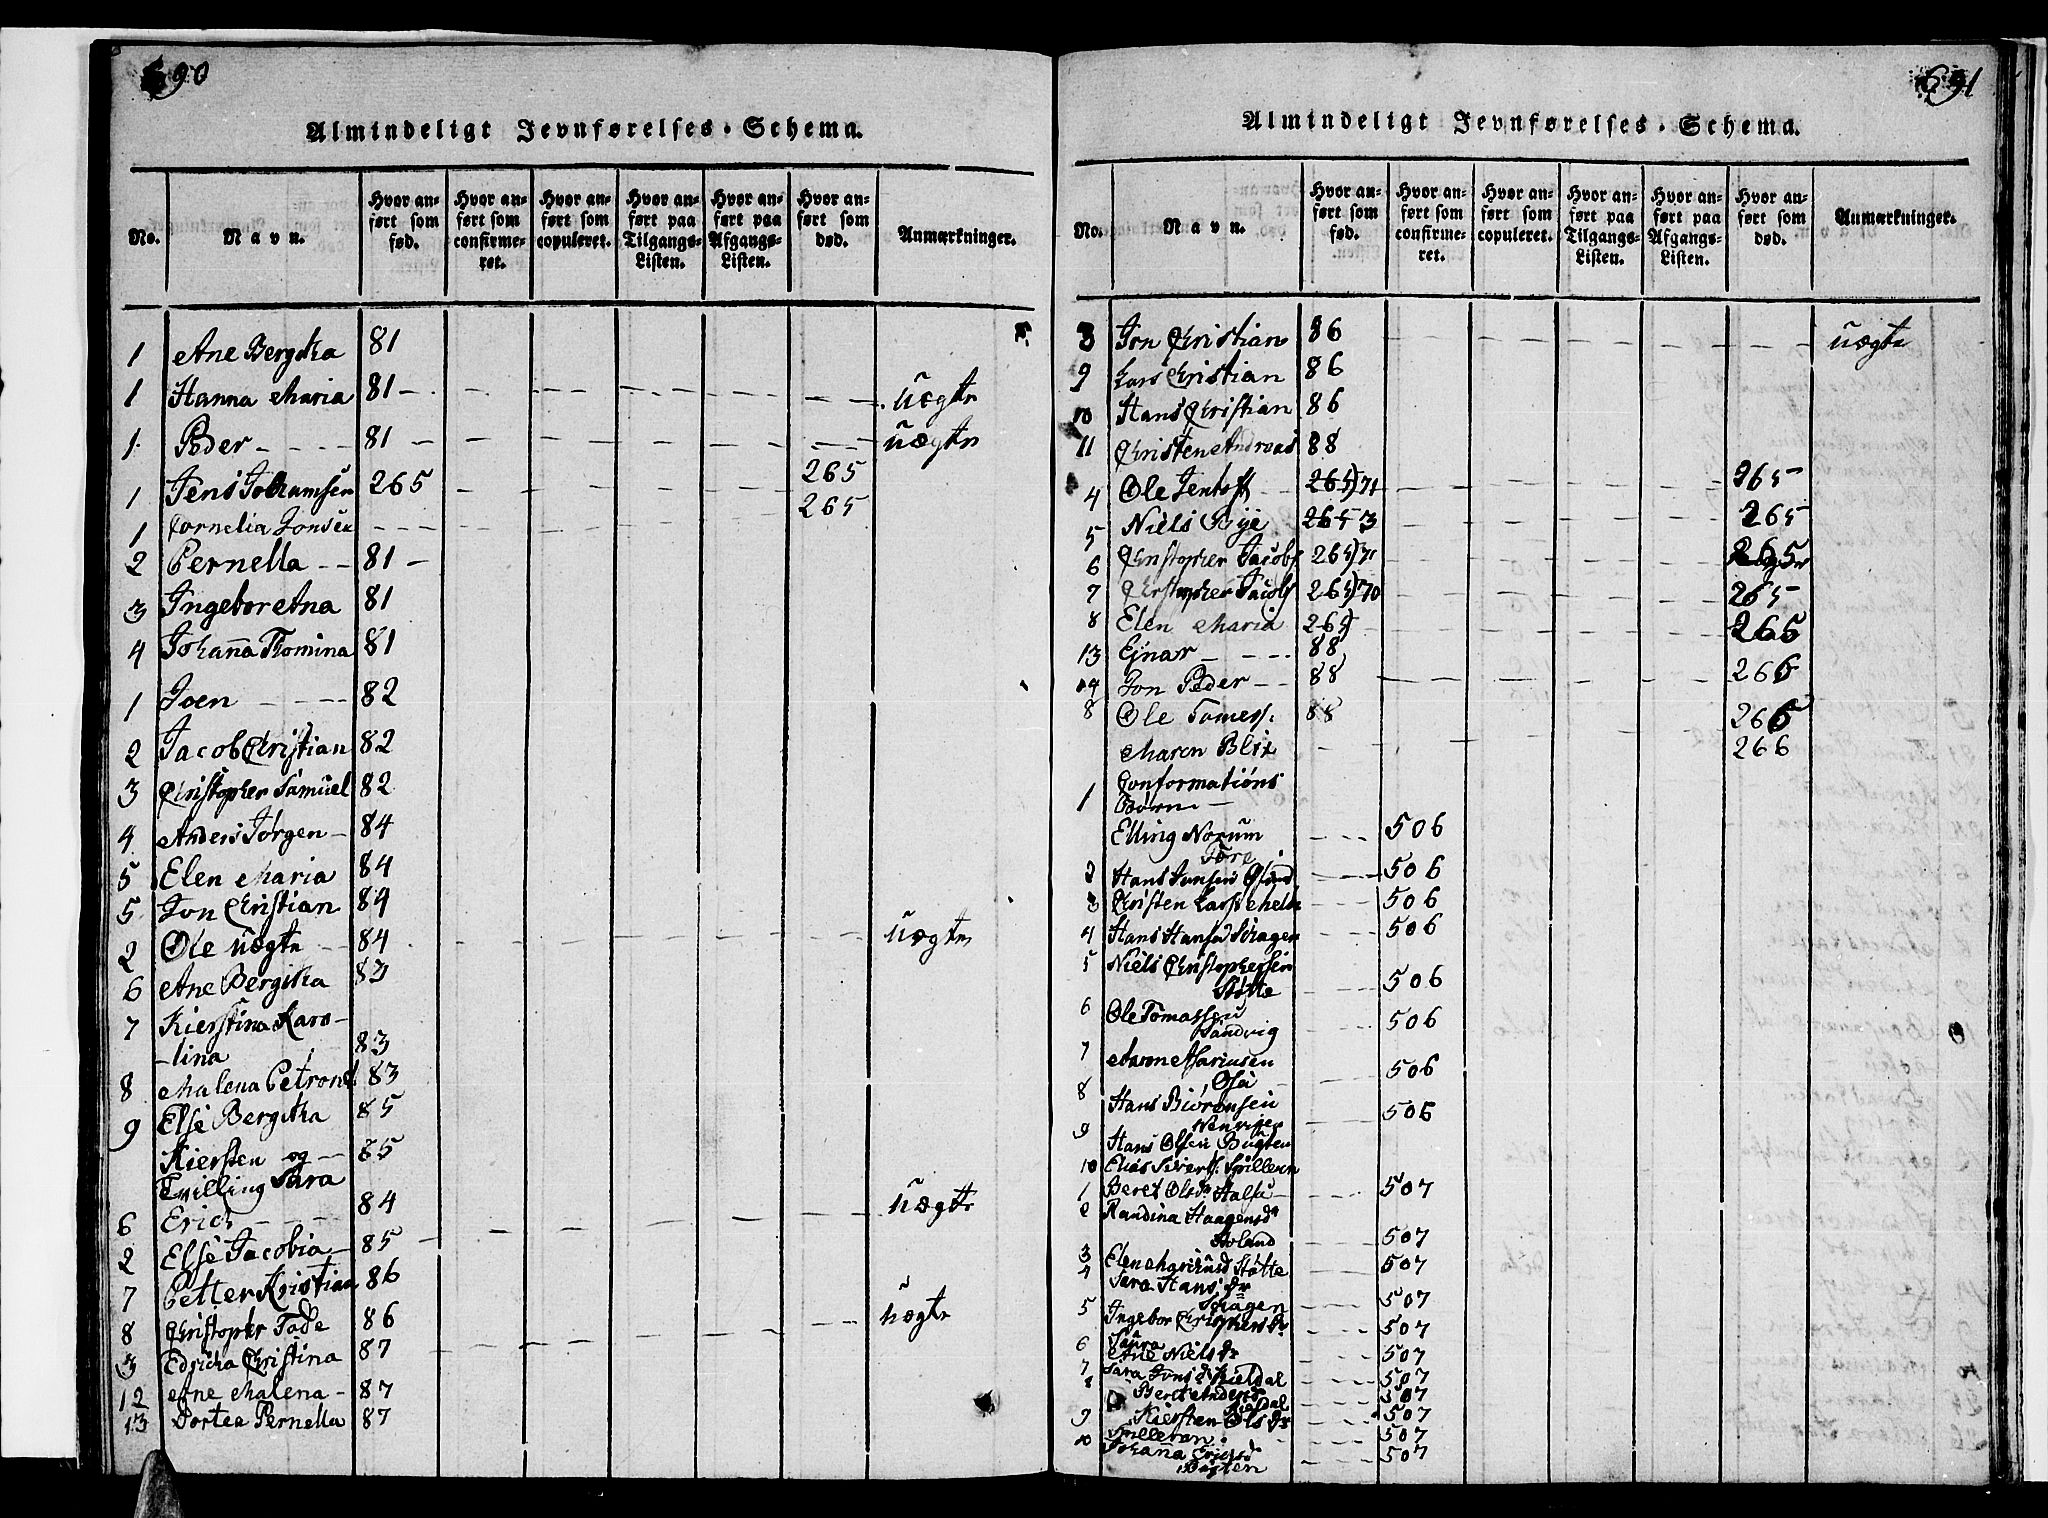 690
Almindeligt Jevnførelses-Schema.
No. Navn. Hvor anført som fød. Hvor anført som confirmeret. Hvor anført som copuleret. Hvor anført paa Tilgangs-Listen. Hvor anført paa Afgangs-Listen. Hvor anført som død. Anmærkninger.
1 Ane Bergitha 81
1 Hanna Maria 81 uægte
1 Peder 81 uægte
1 Jens Johansen 265 265
1 Cornelia Jonsen 265
2 Pernella 81
3 Ingebor Ana 81
4 Johanna Tomina 81
1 Joen 82
2 Jacob Christian 82
3 Christopher Samuel 82
4 Anders Jørgen 84
5 Elen Maria 84
5 Jon Christian 84
2 Ole uægte 84 uægte
6 Ane Bergitha 83
7 Kierstina Karo-
-lina 83
8 Malena Petron 83
9 Else Bergitha 85
Kiersten og 85
Tvilling Sara
6 Erich 84 uægte
2 Else Jacobia 85
7 Petter Kristian 86
8 Christopher Tode 86 uægte
3 Edricka Christina 87
12 Ane Malena 87
13 Dortea Pernella 87
691
Almindeligt Jevnførelses-Schema.
No. Navn. Hvor anført som fød. Hvor anført som confirmeret. Hvor anført som copuleret. Hvor anført paa Tilgangs-Listen. Hvor anført paa Afgangs-Listen. Hvor anført som død. Anmærkninger.
8 Jon Christian 86 uægte
9 Lars Christian 86
10 Hans Christian 86
11 Christen Andreas 88
4 Ole Jentoft 265) 71 265
5 Niels Bye 265 3 265
6 Christopher Jacobs 265) 71 265
7 Christopher Jacobs 265) 70 265
8 Elen Maria 265) 265
13 Ejnar 88 266
Jon Peder 88
8 Ole Tomess. 88 266
Maren Blix 266
1 Conformations
Børn
Elling Norum 506
2 Hans Jensen 506
3 Christen 506
4 Hans Skagen 506
5 Niels Christophersen
Støtte 506
6 Ole Tomassen
Sandvig 506
7 Aron Mariusen 506
8 Hans Biørnsen 506
9 Hans Olsen Bugten
10 Elias Sivert. Spilleren
1 Beret Olsdr Halsa 507
2 Randina Haagensdr
Holand 507
3 Elen Støtte 507
4 Sara Hans dr
Skagen 507
5 Ingebor 507
6 Ane Niels dr 507
7 Sara Jons dr Kieldal 507
8 Beret Anders 507
9 Kiersten Ols dr 507
507
10 Johanna
Bugten 507